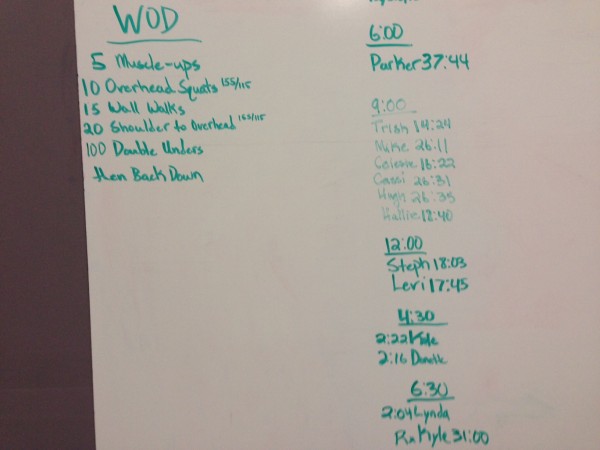 WOD
5 Muscle-ups
10 Overhead Squats 155/115
15 Wall Walks
20 Shoulder to Overhead 155/115
100 Double Unders
then Back Down
6:00
Parker 37:44
9:00
Trish 14:24
Mike 26:11
Celeste 16:22
Cassi 26:31
Hugh 26:35
Hallie 12:40
12:00
Steph 18:03
Levi 17:45
4:30
2:22 Kyle
2:16
6:30
2:04 Lynda
Rx Kyle 31:00